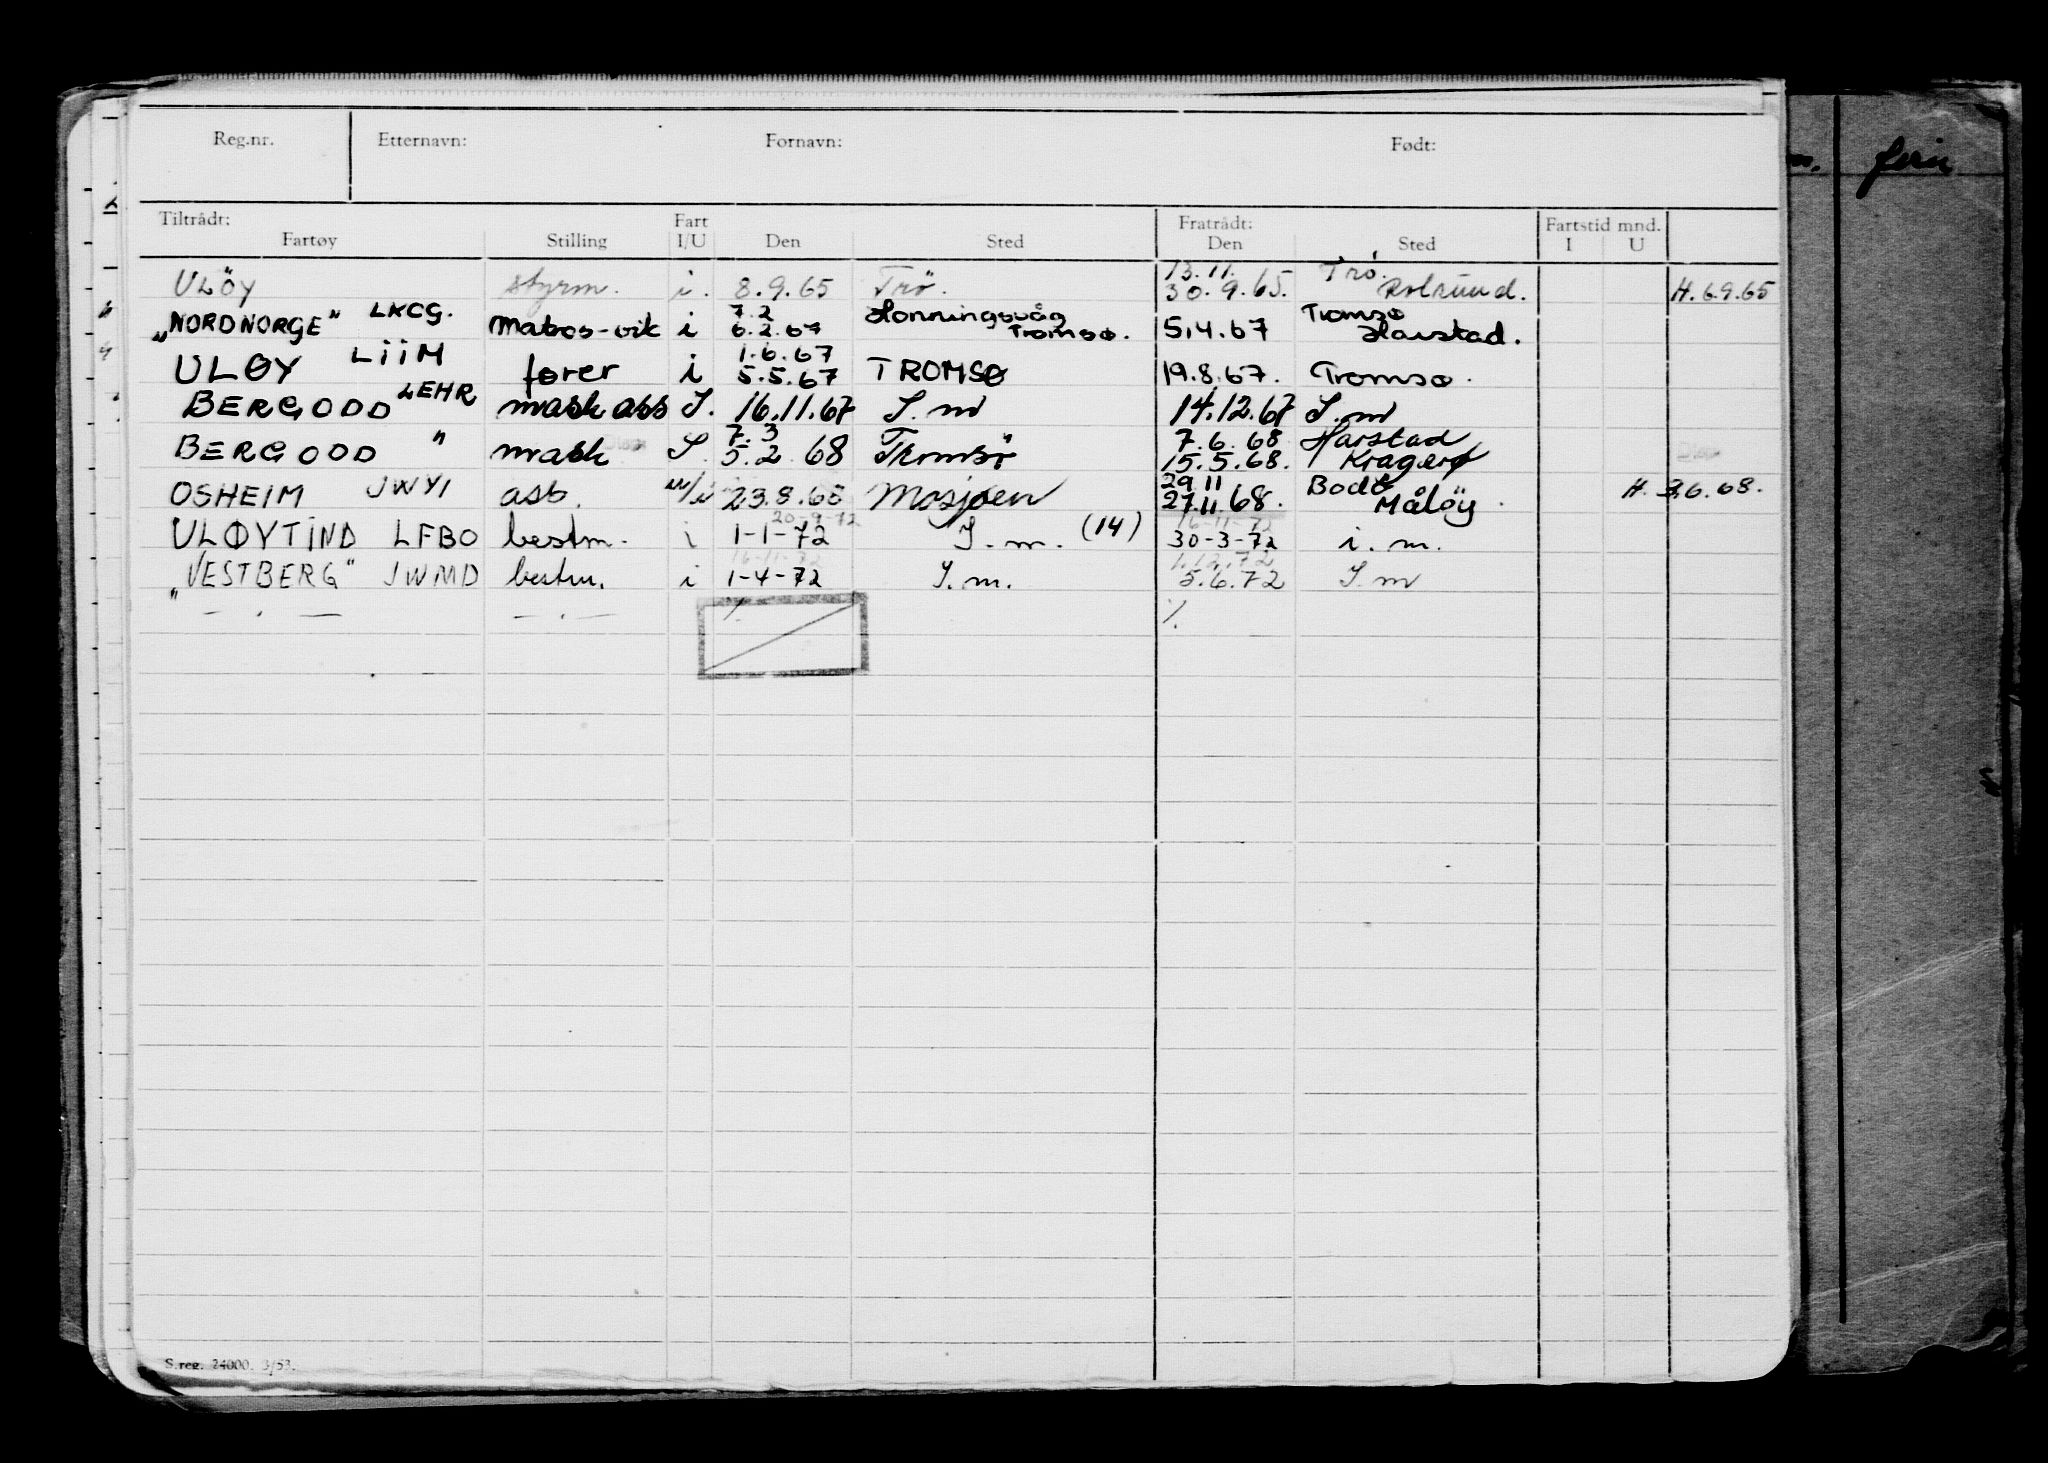 Reg.nr. Etternavn: Fornavn: Født:
Tiltrådt: Fart Fratrådt: Fartstid mnd.
Fartøy Stilling I/U Den Sted Den Sted I U
13.11. Trö.
ULÖY styrm. i. 8.9.65 Trö. 30.9.65. H. 6.9.65
LKCG. 7.2 Honningsvåg Tromsø
"NORDNORGE" Matros-vik i 6.2.67 Tromsø. 5.4.67 Harstad.
LiiM 1.6.67
ULØY fører i 5.5.67 TROMSØ 19.8.67. Tromsø.
BERGODD LEHR mask ass I. 16.11.67 I.m 14.12.67 I.m
7.3 7.6.68 Harstad
BERGODD " mask I. 5.2.68 Tromsö 15.5.68. Kragerø
29 11 Bodø
OSHEIM JWYI ass. u/i 23.8.68 Mosjøen 27.11.68. Måløy. H. 3.6.68.
20-9-72 16-11-72
ULØYTIND LFBO bestm. i 1-1-72 I.m. (14) 30-3-72 i.m.
16-11-72 1.12.72
"VESTBERG" JWMD bestm. i 1-4-72 I.m. 5.6.72 I.m
— . — — . — ٪. ٪.
S.reg. 24000. 3/53.